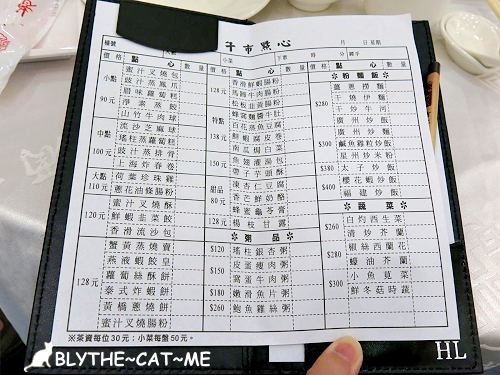 千市點心
檯號 人數 月 日 星期
小菜 下單 時 分 經手
價格 點心 數量 價格 點心 數量 價格 數量
小點 90元
蜜汁叉燒包
豉汁蒸鳳爪
腊味蘿蔔糕
淨素蒸餃
山竹牛肉球
中點 100元
流沙芝麻球
瑤柱蒸蘿蔔糕
豉汁蒸排骨
上海炸春卷
大點 110元
荷葉珍珠雞
蔥花油條腸粉
120元
蜜汁叉燒酥
鮮蝦韭菜餃
香滑流沙包
128元
蟹黃蒸燒賣
燕液蝦餃皇
蘿蔔絲酥餅
泰式炸蝦餅
黃橋蔥燒餅
蜜汁叉燒腸粉
特點 138元
香滑鮮蝦腸粉
馬蹄牛肉腸粉
松板韭黃腸粉
蜂窩麵醬牛肚
百花蒸魚豆腐
鮮蝦腐皮卷
南瓜焗白菜
150元
魚翅灌湯包
帶子芋頭酥
甜品 80元
凍杏仁豆腐
香芒鮮奶酪
蜂蜜龜苓膏
楊枝甘露
※粥品※
$120 瑤柱銀杏粥
$150 皮蛋瘦肉粥
窩蛋牛肉粥
$180 嫩滑魚片粥
$260 鮑魚雞絲粥
※粉麵飯※
$280
薑蔥撈麵
干燒伊麵
干炒牛河
廣州炒飯
廣州炒麵
$300
鹹魚雞粒炒飯
星州炒米粉
$380 太子炒飯
櫻花蝦炒飯
$400 福建炒飯
※蔬菜※
$260
白灼西生菜
清炒芥蘭
$280
椒絲西蘭花
蠔油芥蘭
$300
小魚莧菜
鮮冬菇時蔬
※茶資每位30元；小菜每盤50元。
BLYTHE~CAT~ME
HL